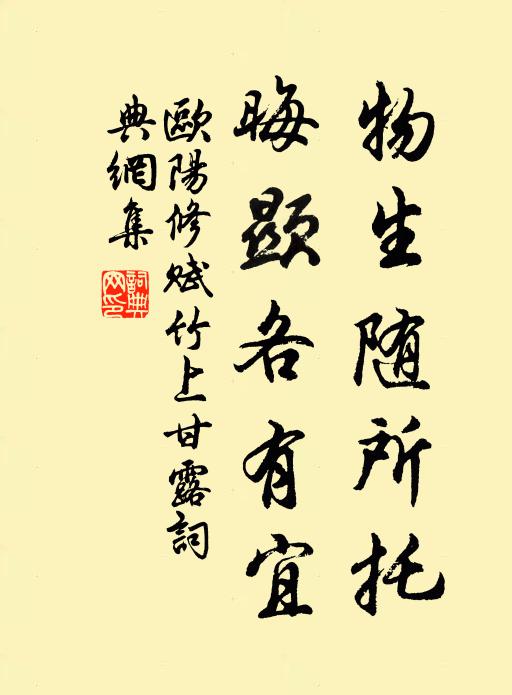 物生随所托
晦显各有宜
歐陽修赋竹上甘露詞
典網集
詞典
网印